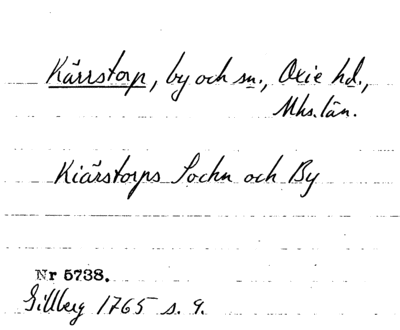 Kärrstorp, by och sn., Oxie hd.,
Mhs. län.
Kiärstorps Sochn och By
Nr 5738.
Gillberg 1765 s. 9.